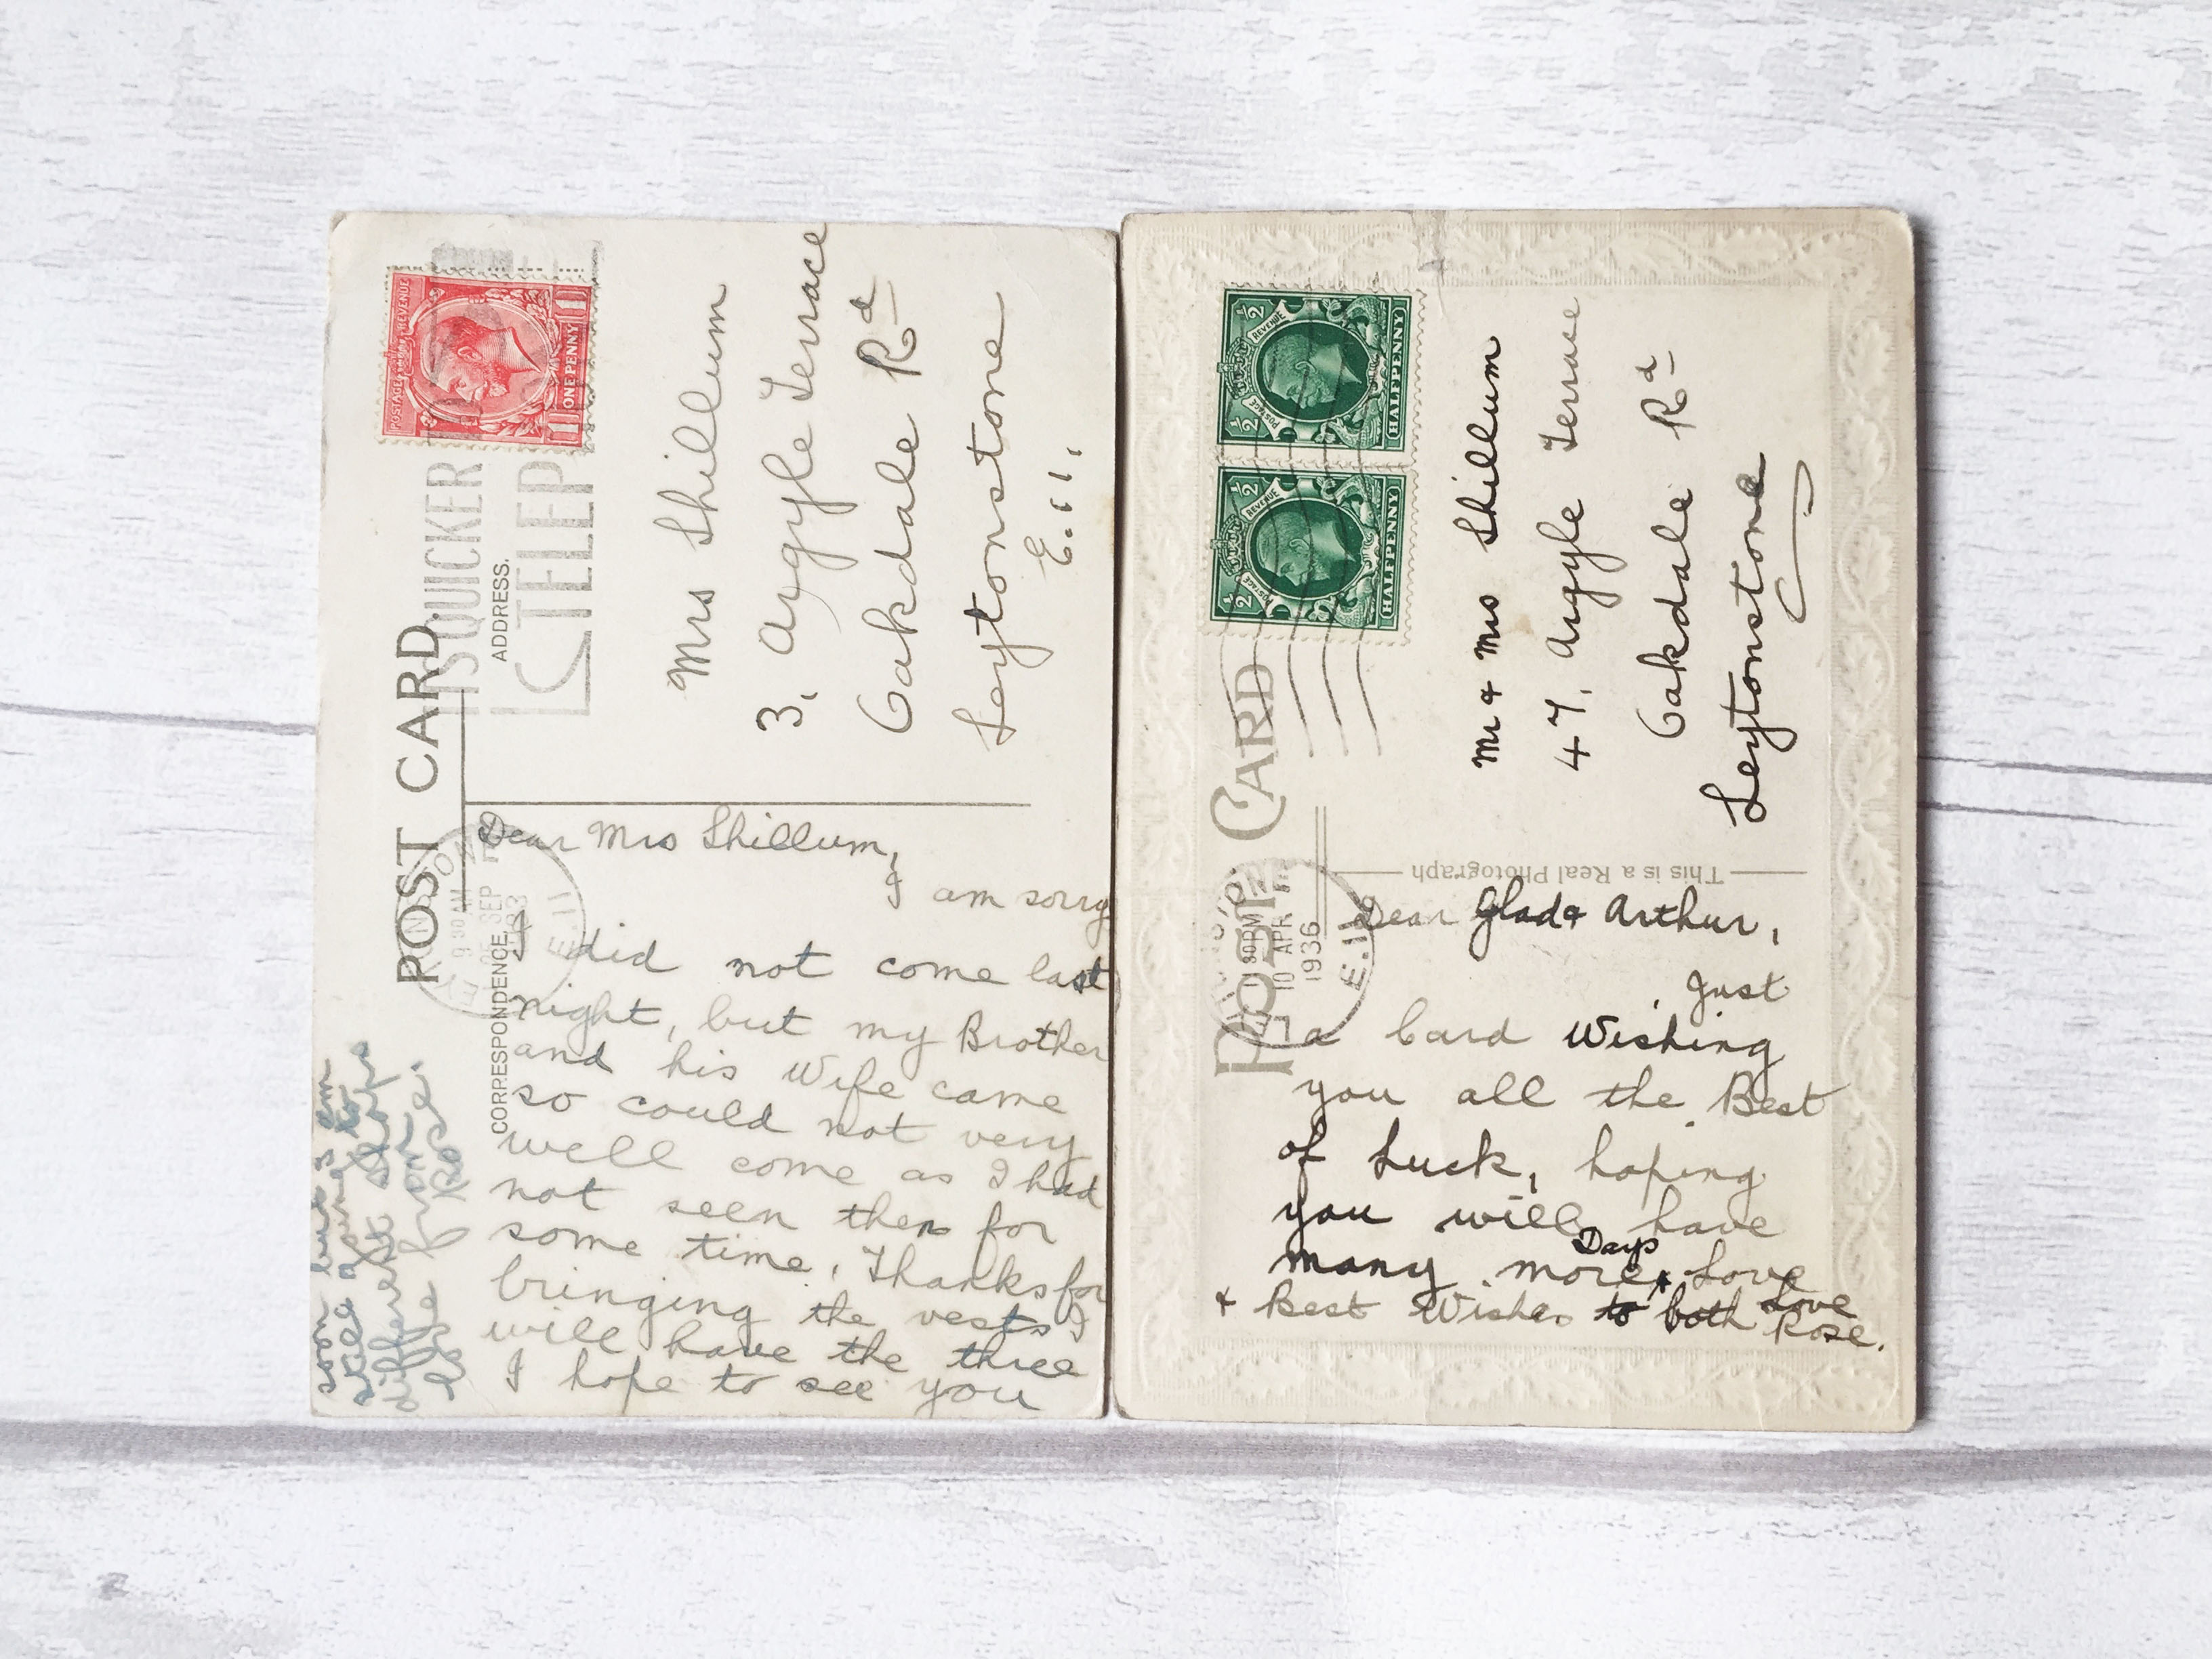 POST CARD
CORRESPONDENCE.
ADDRESS.
POSTAGE
REVENUE
1
1
ONE PENNY
QUICKER
TELEP
9 30 AM
SEP
E.11
Mrs Shillum
3, Argyle Terrace
Oakdale Rd
Leytonstone
E.11.
Dear Mrs Shillum,
I am sorry
I did not come last
night, but my Brother
and his Wife came
so could not very
well come as I had
not seen them for
some time, Thanks for
bringing the vests I
will have the three
I hope to see you
soon but I em
still going to
different shops
Love from
Rose.
POST CARD
This is a Real Photograph
POSTAGE
REVENUE
1/2
1/2
HALFPENNY
POSTAGE
REVENUE
1/2
1/2
HALFPENNY
30PM
10 APR
1936
E.11
Mr & Mrs Shillum
47, Argyle Terrace
Oakdale Rd
Leytonstone
Dear Glad & Arthur,
Just
a Card Wishing
you all the Best
of Luck, hoping
you will have
many more Days, Love
& Best Wishes to both Love
Rose.